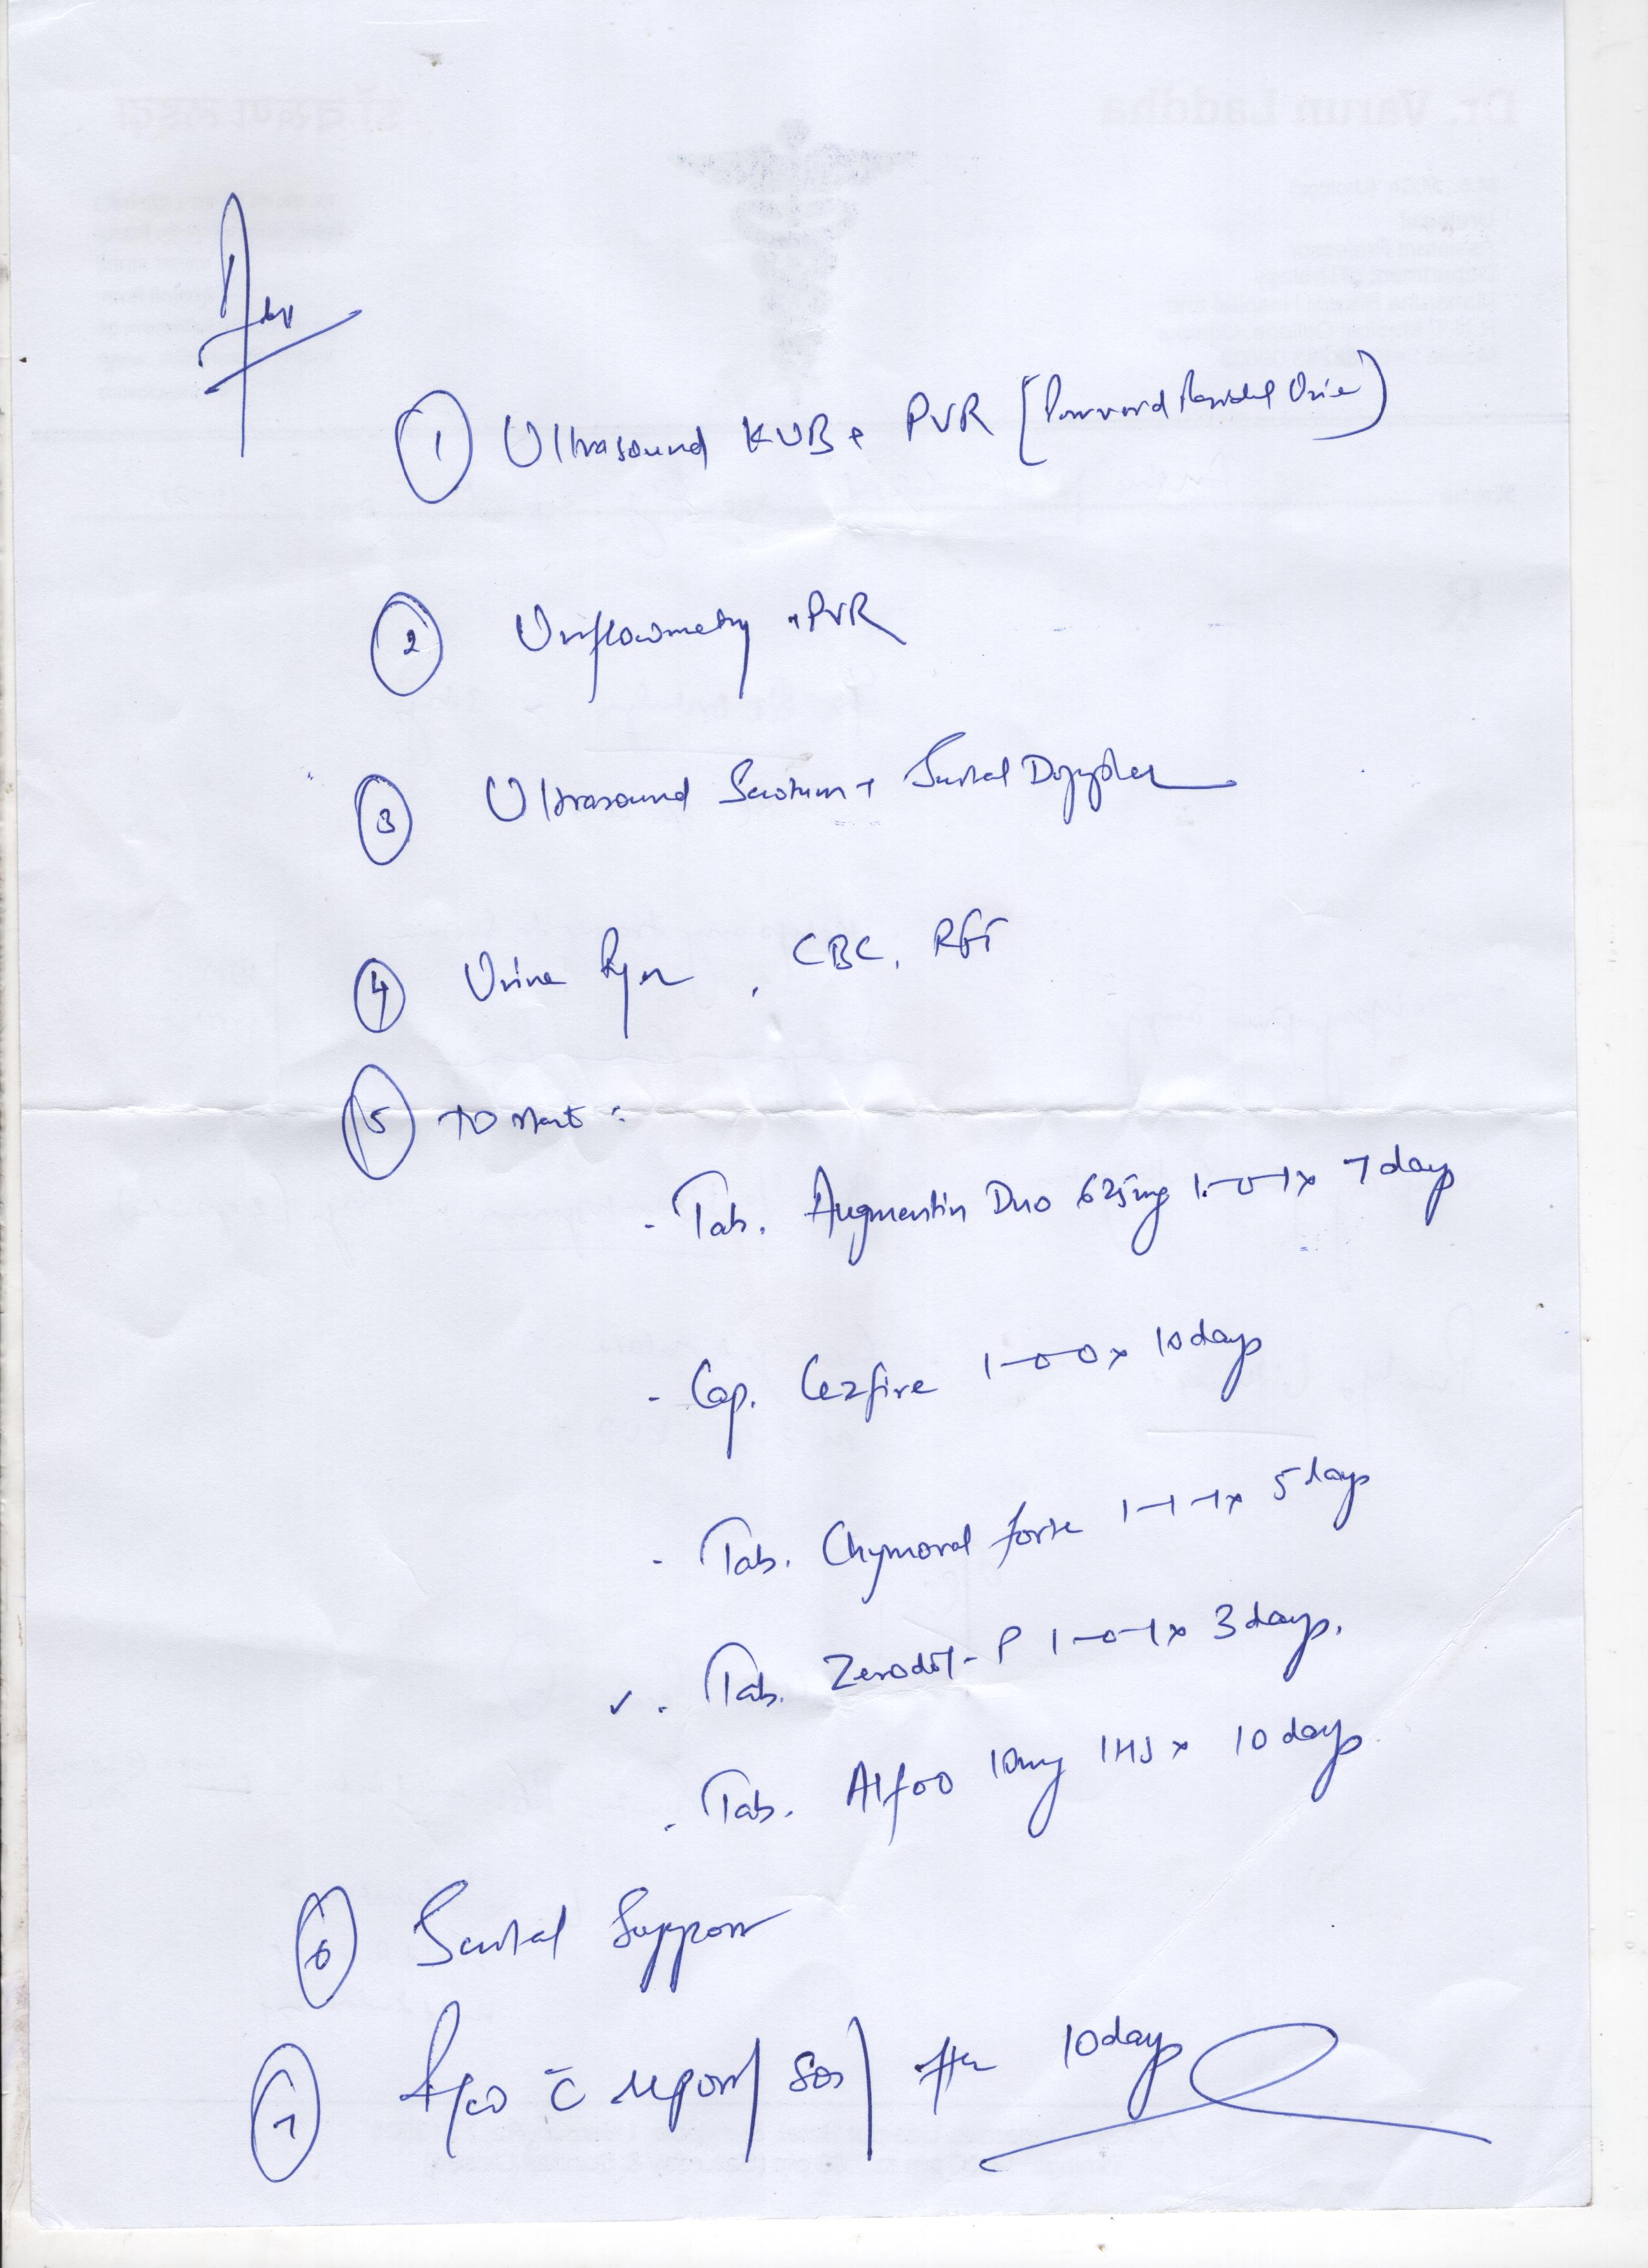 Adv
① Ultrasound KUB + PVR [Postvoid Residual Urine)
② Uroflowmetry + PVR
③ Ultrasound Scrotum + Scrotal Doppler
④ Urine R/M, CBC, RFT
⑤ To start :
- Tab. Augmentin Duo 625mg 1-0-1 x 7 days
- Cap. Cezfire 1-0-0 x 10 days
- Tab. Chymoral forte 1-1-1 x 5 days
✓ . Tab. Zerodol-P 1-0-1 x 3 days.
. Tab. Alfoo 10mg 1HS x 10 days
⑥ Scrotal Support
⑦ c̄ report / SOS / after 10 days